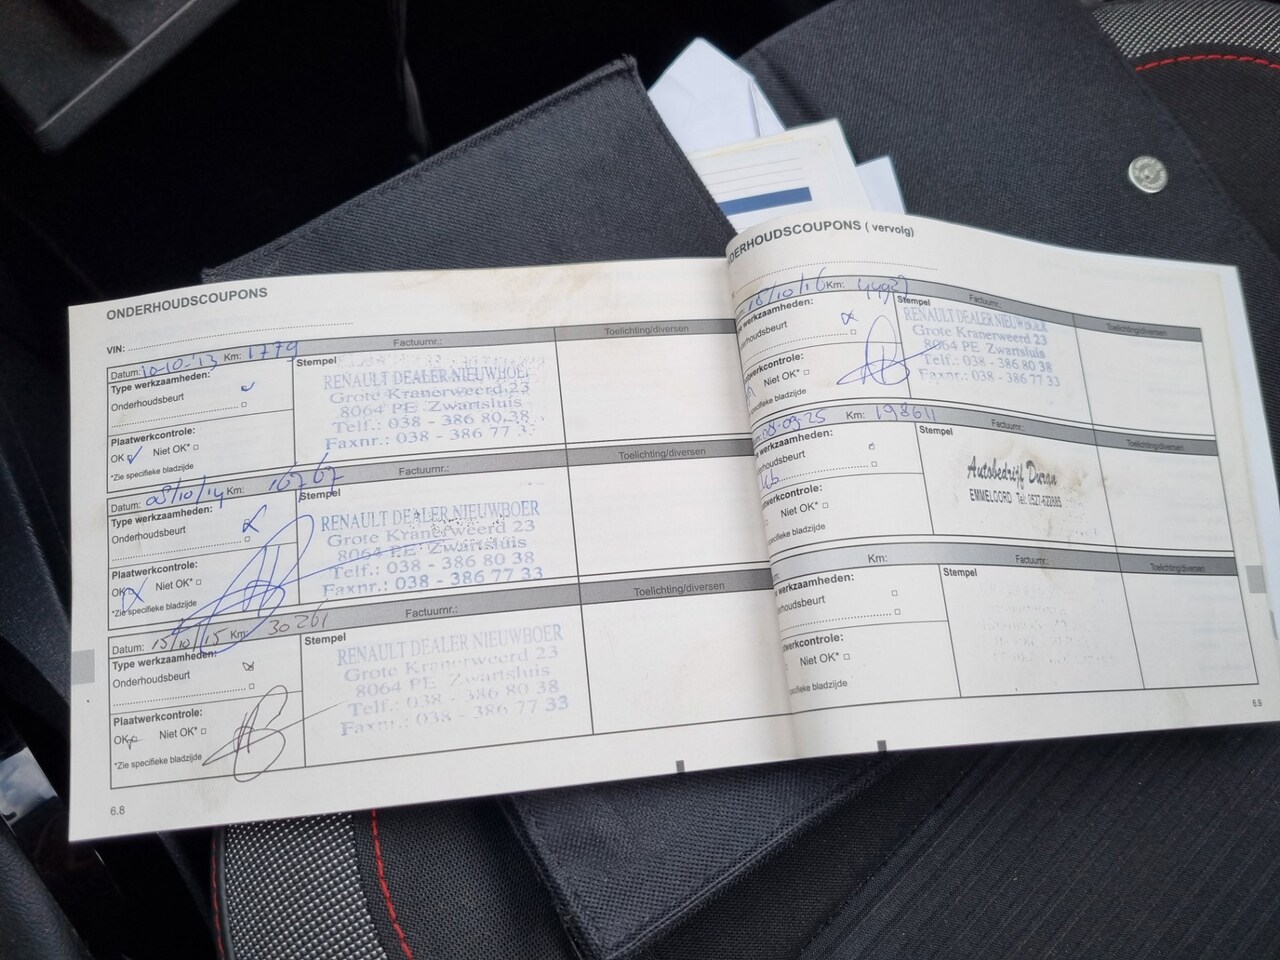 ONDERHOUDSCOUPONS
VIN:
Datum: 10-10-'13 Km: 1779 Factuurnr.: Toelichting/diversen
Type werkzaamheden: Stempel
Onderhoudsbeurt
Plaatwerkcontrole:
OK Niet OK*
*Zie specifieke bladzijde
RENAULT DEALER NIEUWBOER
Grote Kranerweerd 23
8064 PE Zwartsluis
Telf.: 038 - 386 80 38
Faxnr.: 038 - 386 77 33
Datum: 08/10/14 Km: 16767 Factuurnr.: Toelichting/diversen
Type werkzaamheden: Stempel
Onderhoudsbeurt
Plaatwerkcontrole:
OK Niet OK*
*Zie specifieke bladzijde
RENAULT DEALER NIEUWBOER
Grote Kranerweerd 23
8064 PE Zwartsluis
Telf.: 038 - 386 80 38
Faxnr.: 038 - 386 77 33
Datum: 15/10/15 Km: 30261 Factuurnr.: Toelichting/diversen
Type werkzaamheden: Stempel
Onderhoudsbeurt
Plaatwerkcontrole:
OK Niet OK*
*Zie specifieke bladzijde
RENAULT DEALER NIEUWBOER
Grote Kranerweerd 23
8064 PE Zwartsluis
Telf.: 038 - 386 80 38
Faxnr.: 038 - 386 77 33
6.8
NDERHOUDSCOUPONS ( vervolg)
/10/16 Km: Factuurnr. Toelichting/diversen
werkzaamheden: Stempel
derhoudsbeurt
twerkcontrole:
Niet OK*
specifieke bladzijde
RENAULT DEALER NIEUWBOER
Grote Kranerweerd 23
8064 PE Zwartsluis
Telf.: 038 - 386 80 38
Faxnr.: 038 - 386 77 33
08-09-25 Km: 198611 Factuurnr.: Toelichting/diversen
werkzaamheden: Stempel
derhoudsbeurt
twerkcontrole:
Niet OK*
specifieke bladzijde
Autobedrijf Duran
EMMELOORD Tel: 0527-622885
Km: Factuurnr.: Toelichting/diversen
werkzaamheden: Stempel
derhoudsbeurt
atwerkcontrole:
Niet OK*
specifieke bladzijde
6.9